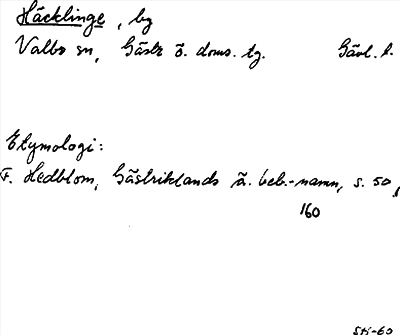 Häcklinge, by
Valbo sn, Gästr ö. doms. tg. Gävl. l.
Etymologi:
F. Hedblom, Gästriklands ä. beb.-namn, s. 50,
160
Sti-60